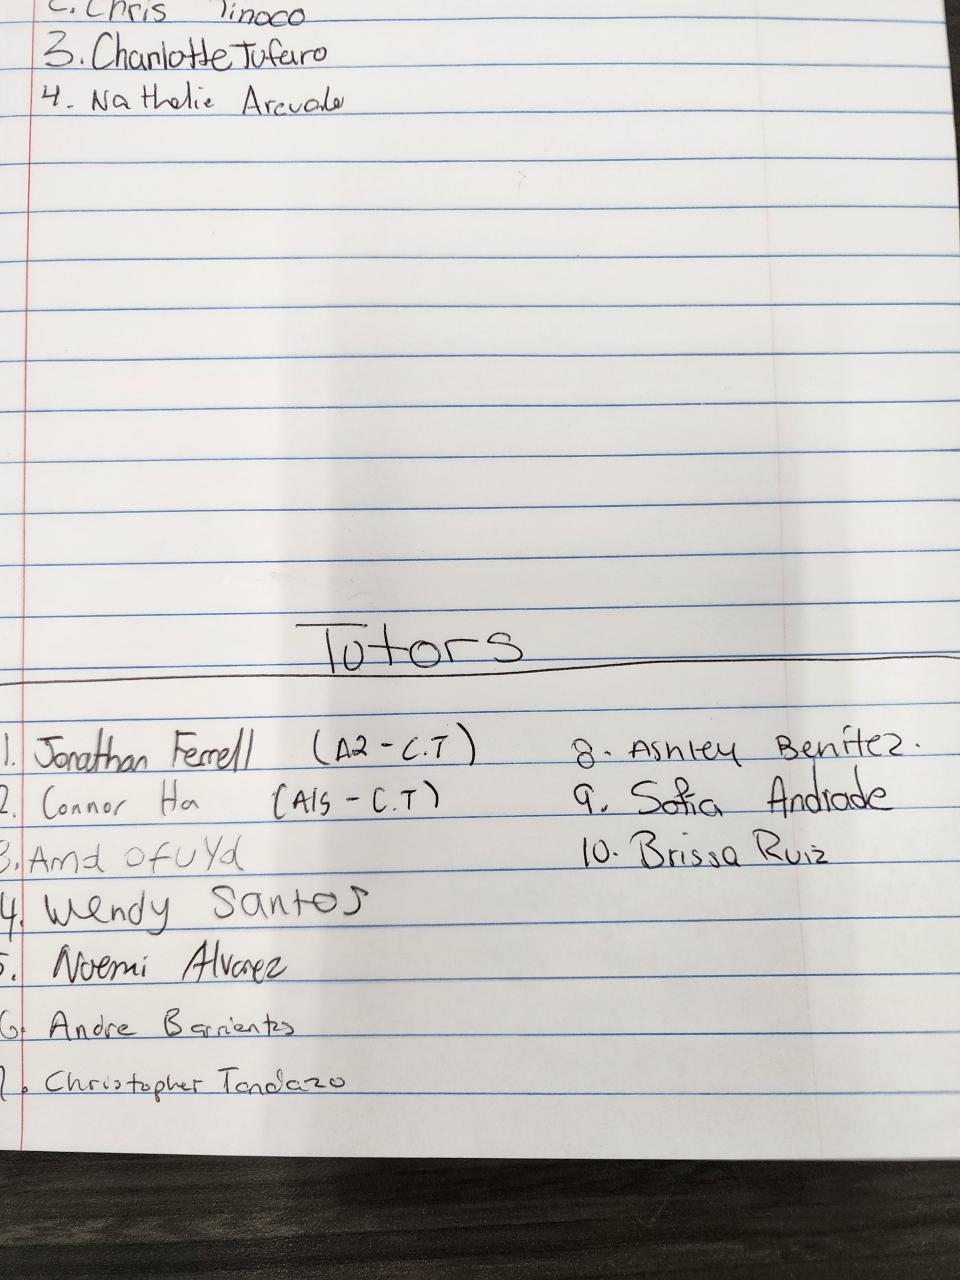 2. Chris Tinoco
3. Charlotte Tufaro
4. Nathalie Arevalo
Tutors
1. Jonathan Ferrell (A2-C.T)
2. Connor Ha (A1S-C.T)
3. Amd ofuyd
4. Wendy Santos
5. Noemi Alvarez
6. Andre Barrientos
7. Christopher Tandazo
8. Ashley Benitez.
9. Sofia Andrade
10. Brissa Ruiz